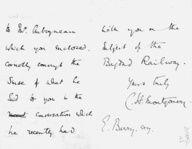 to Mr.
which you enclosed
correctly conveys the
sense of what he
said to you in the
conversation which
he recently had
with you on the
subject of the
Bagdad Railway.
Yours truly
C. H. Montgomery
E. Barry, esq.